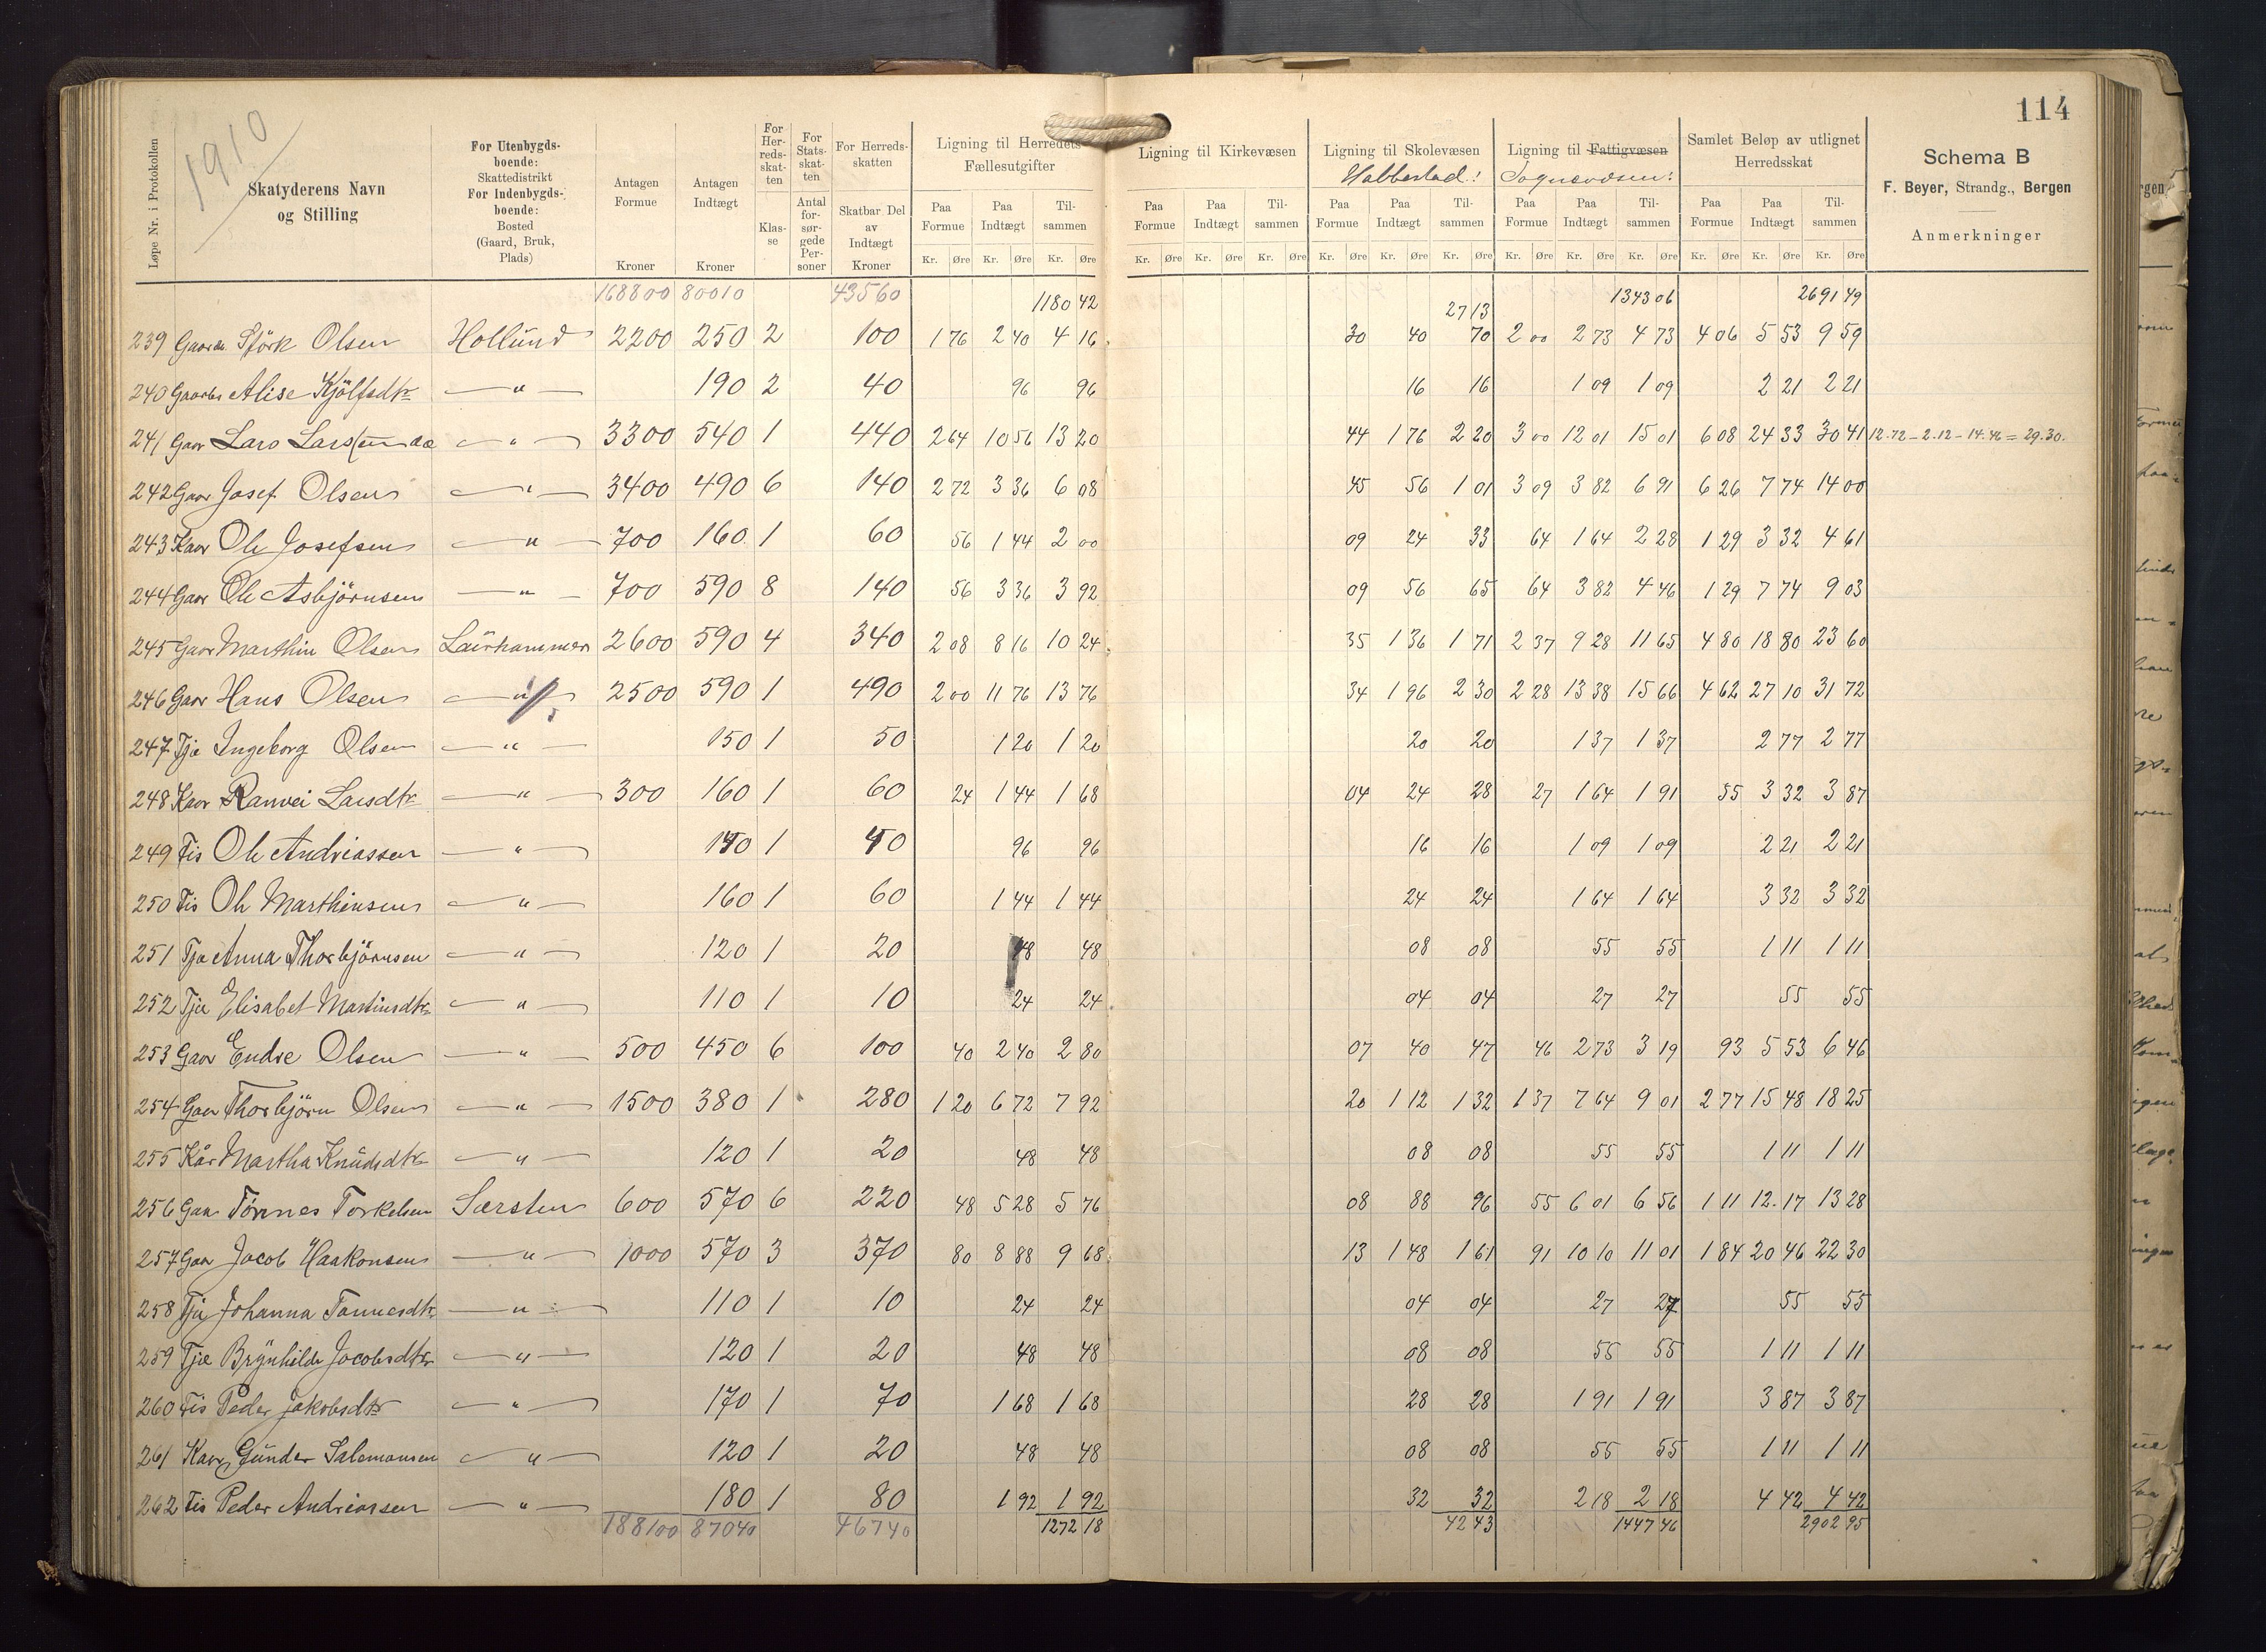 114
1910
Løpe Nr. i Protokollen
Skatyderens Navn og Stilling
For Utenbygds-boende: Skattedistrikt For Indenbygds-boende: Bosted (Gaard, Bruk, Plads)
Antagen Formue Kroner
Antagen Indtægt Kroner
For Herreds-skatten Klasse
For Stats-skatten Antal forsørgede Personer
For Herreds-skatten Skatbar Del av Indtægt Kroner
Ligning til Herredets Fællesutgifter
Ligning til Kirkevæsen
Ligning til Skolevæsen Habbestad:
Ligning til Fattigvæsen Sognevæsen:
Samlet Beløp av utlignet Herredsskat
Paa Formue Paa Indtægt Tilsammen
Kr. Øre Kr. Øre Kr. Øre
Schema B
F. Beyer, Strandg., Bergen
Anmerkninger
168800 80010 43560 1180 42 27 13 1343 06 2691 49
239 Gaardb. Störk Olsen Hollund 2200 250 2 100 1 76 2 40 4 16 30 40 70 2 00 2 73 4 73 4 06 5 53 9 59
240 Gaardbr Alise Kjölfsdtr — " — 190 2 40 96 96 16 16 1 09 1 09 2 21 2 21
241 Gaar Lars Larsen — " — 3300 540 1 440 2 64 10 56 13 20 44 1 76 2 20 3 00 12 01 15 01 6 08 24 33 30 41 12.72 – 2.12 – 14.46 = 29.30.
242 Gaar Josef Olsen — " — 3400 490 6 140 2 72 3 36 6 08 45 56 1 01 3 09 3 82 6 91 6 26 7 74 14 00
243 Kaar Ole Josefsen — " — 700 160 1 60 56 1 44 2 00 09 24 33 64 1 64 2 28 1 29 3 32 4 61
244 Gaar Ole Asbjörnsen — " — 700 590 8 140 56 3 36 3 92 09 56 65 64 3 82 4 46 1 29 7 74 9 03
245 Gaar Marthin Olsen Laurhammer 2600 590 4 340 2 08 8 16 10 24 35 1 36 1 71 2 37 9 28 11 65 4 80 18 80 23 60
246 Gaar Hans Olsen — " — 2500 590 1 490 2 00 11 76 13 76 34 1 96 2 30 2 28 13 38 15 66 4 62 27 10 31 72
247 Tje Ingeborg Olsen — " — 150 1 50 1 20 1 20 20 20 1 37 1 37 2 77 2 77
248 Kaar Ranvei Larsdtr — " — 300 160 1 60 24 1 44 1 68 04 24 28 27 1 64 1 91 55 3 32 3 87
249 Fis Ole Andreassen — " — 140 1 40 96 96 16 16 1 09 1 09 2 21 2 21
250 Fis Ole Marthinsen — " — 160 1 60 1 44 1 44 24 24 1 64 1 64 3 32 3 32
251 Tje Anna Thorbjörnsen — " — 120 1 20 48 48 08 08 55 55 1 11 1 11
252 Tje Elisabet Martinsdtr — " — 110 1 10 24 24 04 04 27 27 55 55
253 Gaar Endre Olsen — " — 500 450 6 100 40 2 40 2 80 07 40 47 46 2 73 3 19 93 5 53 6 46
254 Gaar Thorbjörn Olsen — " — 1500 380 1 280 1 20 6 72 7 92 20 1 12 1 32 1 37 7 64 9 01 2 77 15 48 18 25
255 Kår Martha Knudsdtr — " — 120 1 20 48 48 08 08 55 55 1 11 1 11
256 Gaa Tönnes Torkelsen Særsten 600 570 6 220 48 5 28 5 76 08 88 96 55 6 01 6 56 1 11 12.17 13 28
257 Gaa Jacob Haakonsen — " — 1000 570 3 370 80 8 88 9 68 13 1 48 1 61 91 10 10 11 01 1 84 20 46 22 30
258 Tje Johanna Tönnesdtr — " — 110 1 10 24 24 04 04 27 27 55 55
259 Tje Brynhilde Jacobsdtr — " — 120 1 20 48 48 08 08 55 55 1 11 1 11
260 Fis Peder Jakobsdtr — " — 170 1 70 1 68 1 68 28 28 1 91 1 91 3 87 3 87
261 Kaar Gunder Salamonsen — " — 120 1 20 48 48 08 08 55 55 1 11 1 11
262 Fis Peder Andreassen — " — 180 1 80 1 92 1 92 32 32 2 18 2 18 4 42 4 42
188100 87040 46740 1272 18 42 43 1447 46 2902 95